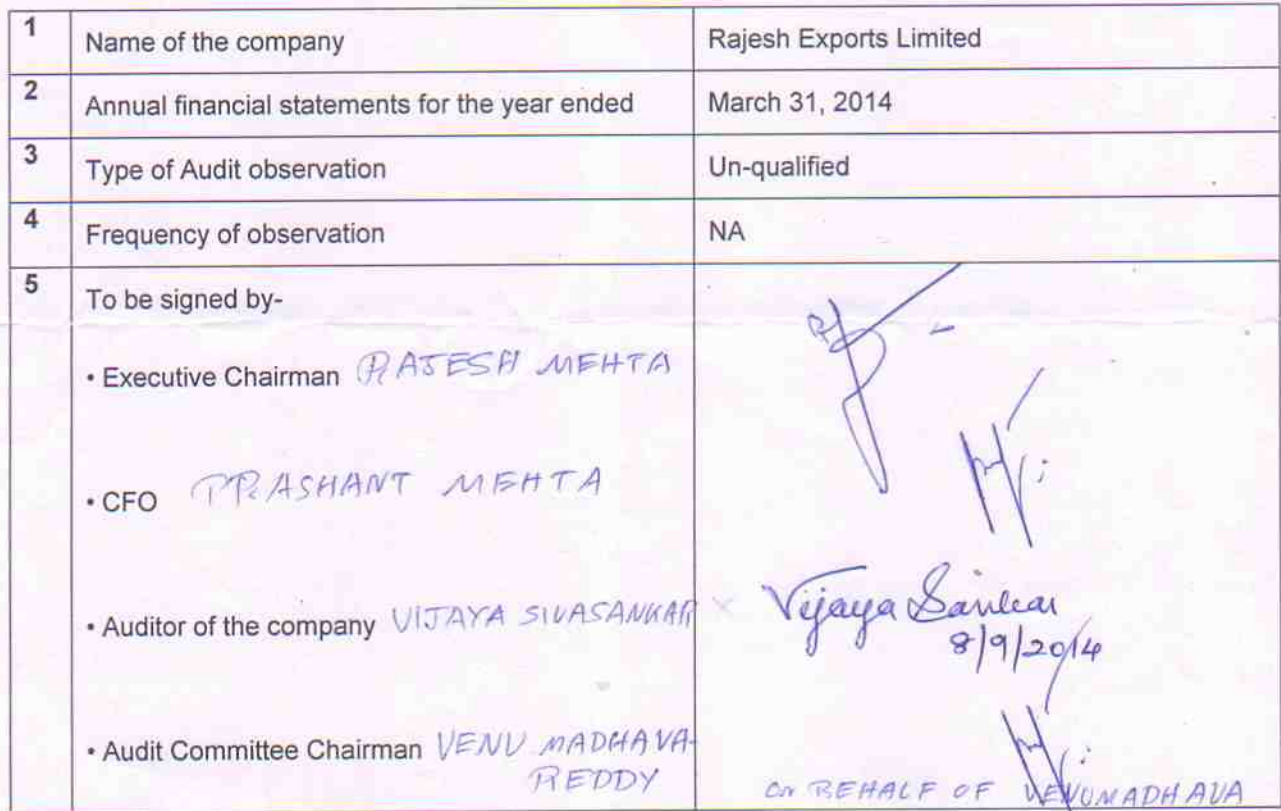 1 Name of the company Rajesh Exports Limited
2 Annual financial statements for the year ended March 31, 2014
3 Type of Audit observation Un-qualified
4 Frequency of observation NA
5 To be signed by-
• Executive Chairman RAJESH MEHTA
• CFO PRASHANT MEHTA
• Auditor of the company VIJAYA SIVASANKAR Vijaya Sankar
8/9/2014
• Audit Committee Chairman VENU MADHAVA-
REDDY ON BEHALF OF VENUMADHAVA